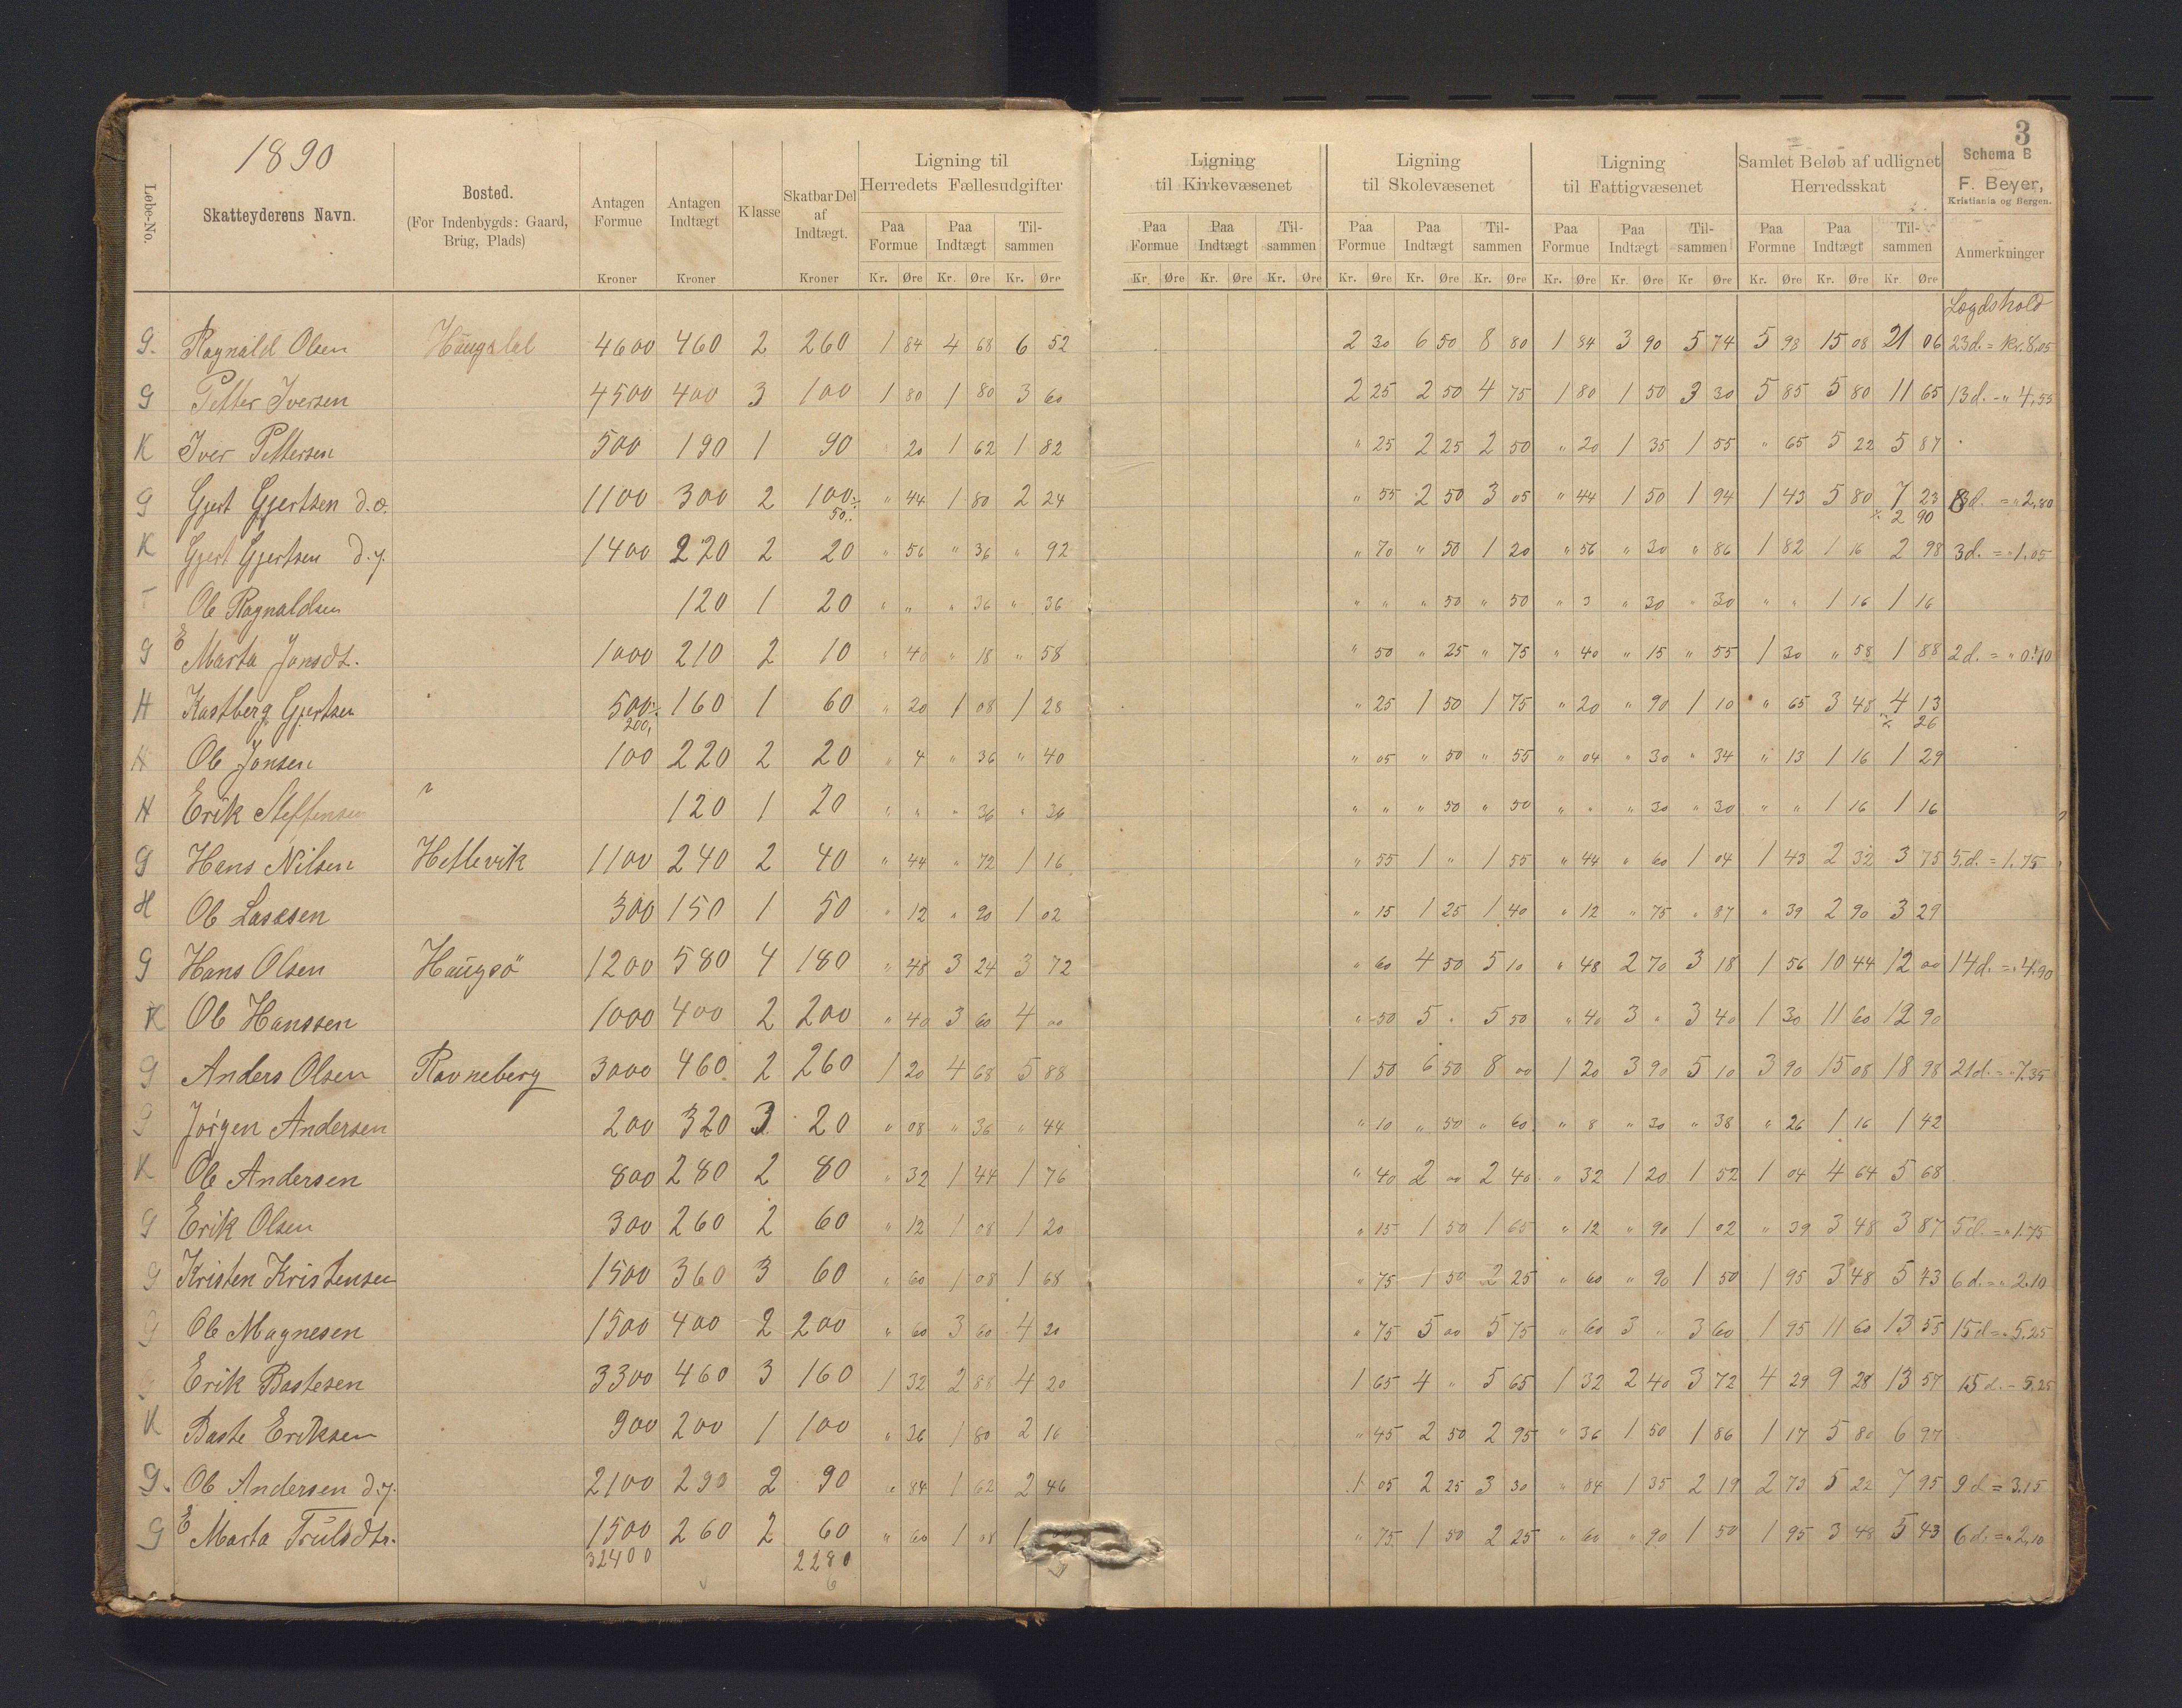 1890
3
Schema B
F. Beyer,
Kristiania og Bergen.
Løbe-No. | Skatteyderens Navn. | Bosted. (For Indenbygds: Gaard, Brug, Plads) | Antagen Formue Kroner | Antagen Indtægt Kroner | Klasse | Skatbar Del af Indtægt. Kroner | Ligning til Herredets Fællesudgifter | Ligning til Kirkevæsenet | Ligning til Skolevæsenet | Ligning til Fattigvæsenet | Samlet Beløb af udlignet Herredsskat | Anmerkninger
Paa Formue | Paa Indtægt | Til-sammen | Paa Formue | Paa Indtægt | Til-sammen | Paa Formue | Paa Indtægt | Til-sammen | Paa Formue | Paa Indtægt | Til-sammen | Paa Formue | Paa Indtægt | Til-sammen
Kr. Øre | Kr. Øre | Kr. Øre | Kr. Øre | Kr. Øre | Kr. Øre | Kr. Øre | Kr. Øre | Kr. Øre | Kr. Øre | Kr. Øre | Kr. Øre | Kr. Øre | Kr. Øre | Kr. Øre
Lægdshold
G. Ragnald Olsen Haugsdal 4600 460 2 260 1 84 4 68 6 52 2 30 6 50 8 80 1 84 3 90 5 74 5 98 15 08 21 06 23d. = Kr. 8,05
G Petter Iversen 4500 400 3 100 1 80 1 80 3 60 2 25 2 50 4 75 1 80 1 50 3 30 5 85 5 80 11 65 13d. - " 4,55
K Iver Pettersen 500 190 1 90 20 1 62 1 82 " 25 2 25 2 50 " 20 1 35 1 55 " 65 5 22 5 87
G Gjert Gjertsen d.æ. 1100 300 2 100 ÷ " 44 1 80 2 24 " 55 2 50 3 05 " 44 1 50 1 94 1 43 5 80 7 23 8d. = " 2,80
50,. ÷ 2 90
K Gjert Gjertsen d.y. 1400 220 2 20 " 56 " 36 " 92 " 70 " 50 1 20 " 56 " 30 " 86 1 82 1 16 2 98 3d. = " 1.05
Ole Ragnaldsen 120 1 20 " " " 36 " 36 " " " 50 " 50 " 3 " 30 " 30 " " 1 16 1 16
G E Marta Jonsdt. 1000 210 2 10 " 40 " 18 " 58 " 50 " 25 " 75 " 40 " 15 " 55 1 30 " 58 1 88 2d. = "
H Kastberg Gjertsen 500 ÷ 160 1 60 " 20 1 08 1 28 " 25 1 50 1 75 " 20 " 90 1 10 " 65 3 48 4 13
200, ÷ 26
H Ole Jonsen 100 220 2 20 " 4 " 36 " 40 " 05 " 50 " 55 " 04 " 30 " 34 " 13 1 16 1 29
H Erik Steffensen " 120 1 20 " " " 36 " 36 " " " 50 " 50 " " " 30 " 30 " " 1 16 1 16
G Hans Nilsen Hellevik 1100 240 2 40 " 44 " 72 1 16 " 55 1 " 1 55 " 44 " 60 1 04 1 43 2 32 3 75 5.d. = 1.75
H Ole Lassesen 300 150 1 50 " 12 " 90 1 02 " 15 1 25 1 40 " 12 " 75 " 87 " 39 2 90 3 29
G Hans Olsen Haugsø 1200 580 4 180 " 48 3 24 3 72 " 60 4 50 5 10 " 48 2 70 3 18 1 56 10 44 12 00 14d. = " 4.90
K Ole Hanssen 1000 400 2 200 " 40 3 60 4 00 " 50 5 " 5 50 " 40 3 " 3 40 1 30 11 60 12 90
G Anders Olsen Ravneberg 3000 460 2 260 1 20 4 68 5 88 1 50 6 50 8 00 1 20 3 90 5 10 3 90 15 08 18 98 21d. = " 7.35
G Jørgen Andersen 200 320 3 20 " 08 " 36 " 44 " 10 " 50 " 60 " 8 " 30 " 38 " 26 1 16 1 42
K Ole Andersen 800 280 2 80 " 32 1 44 1 76 " 40 2 00 2 40 " 32 1 20 1 52 1 04 4 64 5 68
G Erik Olsen 300 260 2 60 " 12 1 08 1 20 " 15 1 50 1 65 " 12 " 90 1 02 " 39 3 48 3 87 5d. = " 1.75
G Kristen Kristensen 1500 360 3 60 " 60 1 08 1 68 " 75 1 50 2 25 " 60 " 90 1 50 1 95 3 48 5 43 6d. = " 2.10
G Ole Magnesen 1500 400 2 200 " 60 3 60 4 20 " 75 5 00 5 75 " 60 3 " 3 60 1 95 11 60 13 55 15d = " 5.25
G Erik Bastesen 3300 460 3 160 1 32 2 88 4 20 1 65 4 " 5 65 1 32 2 40 3 72 4 29 9 28 13 57 15 d. - 5.25
K Baste Eriksen 900 200 1 100 " 36 1 80 2 16 " 45 2 50 2 95 " 36 1 50 1 86 1 17 5 80 6 97
G. Ole Andersen d.y. 2100 290 2 90 " 84 1 62 2 46 1 05 2 25 3 30 " 84 1 35 2 19 2 73 5 22 7 95 9 d = 3.15
G E Marta Trulsdtr. 1500 260 2 60 " 60 1 08 1 " 75 1 50 2 25 " 60 " 90 1 50 1 95 3 48 5 43 6d. = " 2,10
32400 2280
6